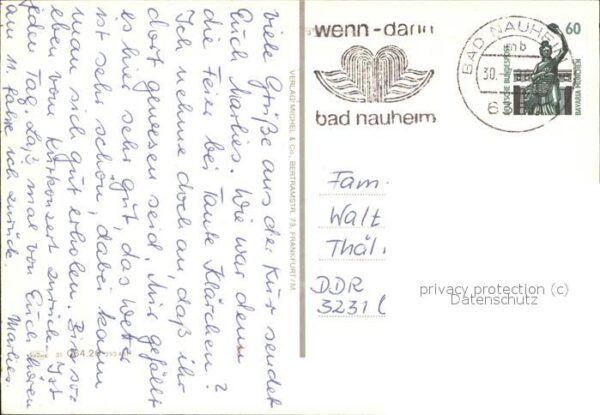 Viele Grüße aus der Kur sendet
Euch Marlies. Wie war denn
die Feier bei Tante Klärchen?
Ich nehme doch an, daß ihr
dort gewesen seid. Mir gefällt
es hier sehr gut, das Wetter
ist sehr schön, dabei kann
man sich gut erholen. Bin so-
eben vom Kurkonzert zurück. Ist
jeden Tag. Laßt mal von Euch hören
am 11. fahre ich zurück.
Marlies.
VERLAG MICHEL & Co. BERTRAMSTR. 73, FRANKFURT/M.
wenn - dann
bad nauheim
BAD NAUHEIM
mb
30.
6
60
DEUTSCHE BUNDESPOST
BAVARIA MÜNCHEN
Fam.
Walt
Thäl.
DDR
3231
privacy protection (c)
Datenschutz